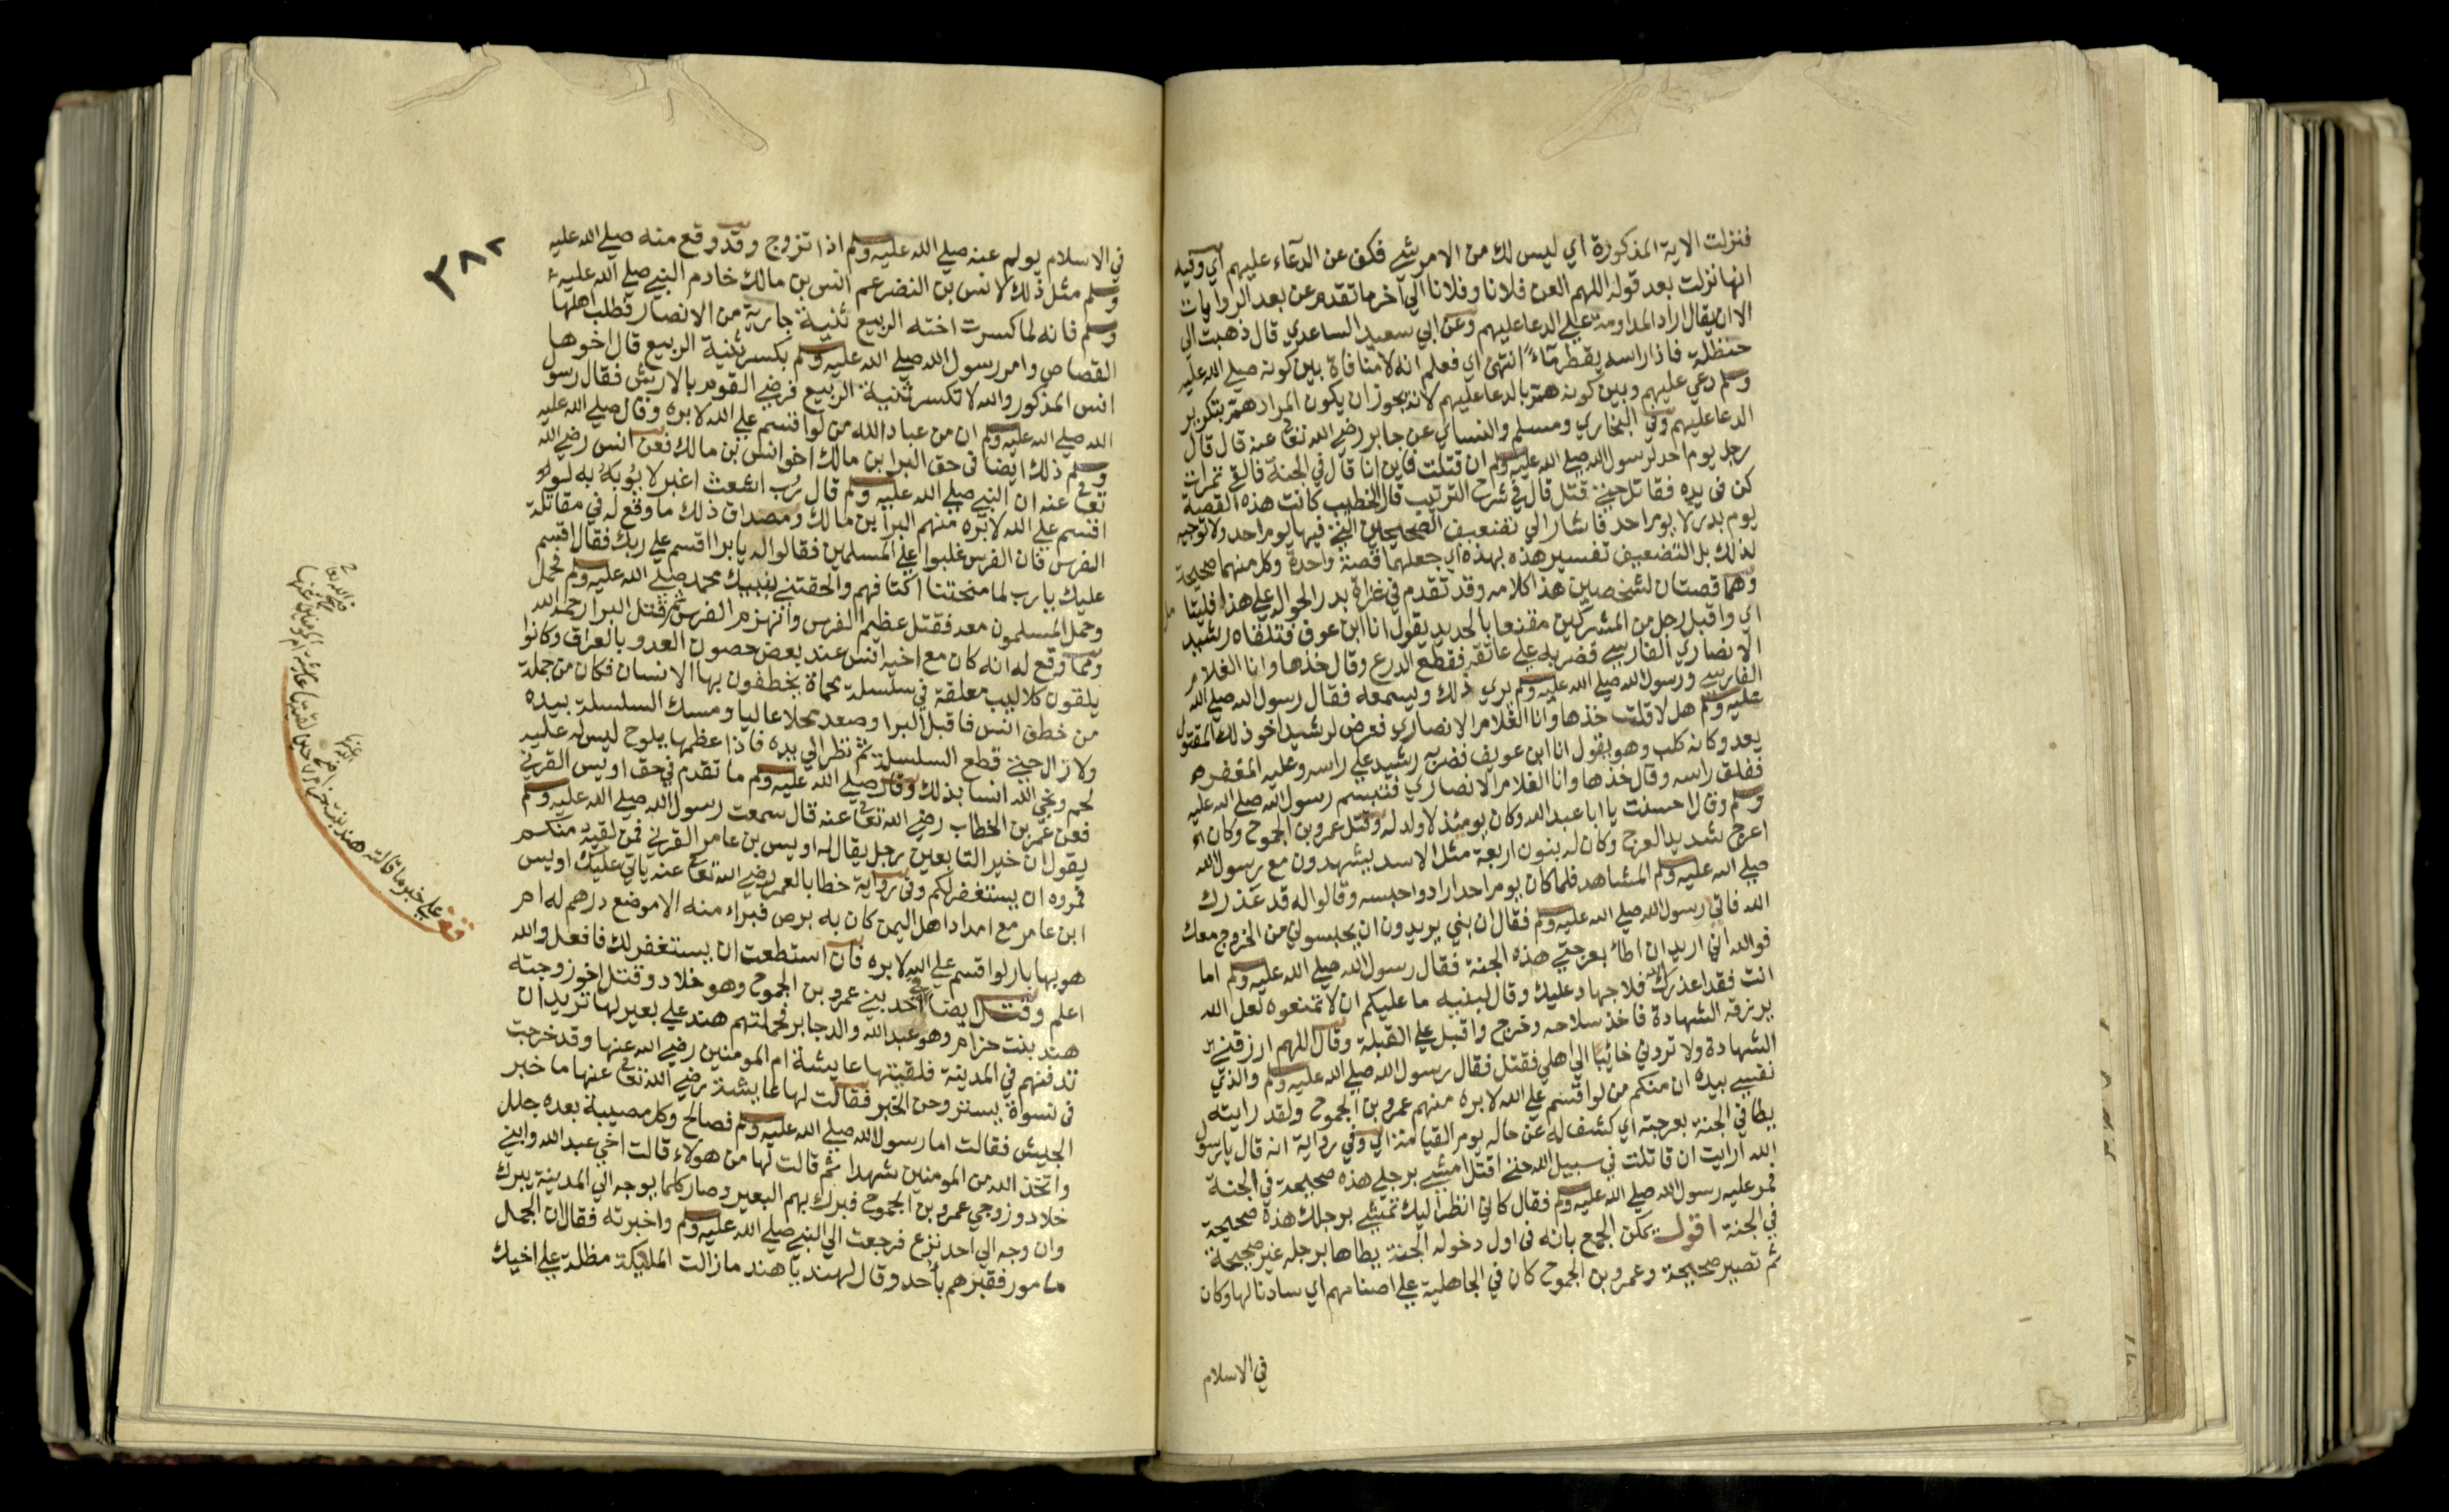 فنزلت الاية المذكورة اي ليس لك من الامر شي فكف عن الدعاء عليهم اي وفيه
انها نزلت بعد قوله اللهم العن فلانا وفلانا الى آخر ما تقدم عن بعد الروايات
الا ان يقال اراد المداومة علي الدعا عليهم وعن ابي سعيد الساعدي قال ذهبت الى
حنظلة فاذا راسه يقطر مآء انتهى اي فعلم انه لا منافاة بين كونه صلي الله عليه
وسلم دعي عليهم وبين كونه هم بالدعا عليهم لانه يجوز ان يكون المراد هم بتكرير
الدعا عليهم وفي البخاري ومسلم والنساي عن جابر رضي الله تعا عنه قال قال
رجل يوم احد لرسول الله صلي الله عليه وسلم ان قتلت فاين انا قال في الجنة فالقى تمرات
كن في يده فقاتل حتي قتل قال في شرح الترتيب قال الخطيب كانت هذه القصة
يوم بدر لا يوم احد فاشار الي تضعيف الصحيحين التي فيها يوم احد ولا توجيه
لذلك بل التضعيف تفسير هذه بهذه اي جعلهما قصة واحدة وكل منهما صحيحة
وهما قصتان لشخصين هذا كلامه وقد تقدم في غزاة بدر الحوالة علي هذا فليتا مل
اي واقبل رجل من المشركين مقنعا بالحديد يقول انا ابن عوف فتلقاه رشيد
الانصاري الفارسي فضربه علي عاتقه فقطع الدرع وقال خذها وانا الغلام
الفارسي ورسول الله صلي الله عليه وسلم يري ذلك ويسمعه فقال رسول الله صلي الله
عليه وسلم هل لا قلت خذها وانا الغلام الانصاري فعرض لرشيد اخو ذلك المقتول
يعدو كانه كلب وهو يقول انا ابن عويف فضربه رشيد علي راسه وعليه المغفر
ففلق راسه وقال خذها وانا الغلام الانصاري فتبسم رسول الله صلي الله عليه
وسلم وقال احسنت يا ابا عبد الله وكان يومئذ لا ولد له وقتل عمرو بن الجموح وكان
اعرج شديد العرج وكان له بنون اربعة مثل الاسد يشهدون مع رسول الله
صلي الله عليه وسلم المشاهد فلما كان يوم احد ارادوا حبسه وقالوا له قد عذرك
الله فاتي رسول الله صلي الله عليه وسلم فقال ان بني يريدون ان يحبسوني من الخروج معك
فوالله اني اريد ان اطا بعرجتي هذه الجنة فقال رسول الله صلي الله عليه وسلم اما
انت فقد اعذرك الله فلا جهاد عليك وقال لبنيه ما عليكم ان لا تمنعوه لعل الله
يرزقه الشهادة فاخذ سلاحه وخرج واقبل علي القبلة وقال اللهم ارزقني
الشهادة ولا تردني خائبا الي اهلي فقتل فقال رسول الله صلي الله عليه وسلم والذي
نفسي بيده ان منكم من لو اقسم علي الله لابره منهم عمرو بن الجموح ولقد رايته
يطا في الجنة بعرجته اي كشف له عن حاله يوم القيامة اي وفي رواية انه قال يا رسول
الله ارايت ان قاتلت في سبيل الله حتي اقتل امشي برجلي هذه صحيحة في الجنة
فمر عليه رسول الله صلي الله عليه وسلم فقال كاني انظر اليك تمشي برجلك هذه صحيحة
في الجنة اقول يمكن الجمع بانه في اول دخوله الجنة يطاها برجله غير صحيحة
ثم تصير صحيحة وعمرو بن الجموح كان في الجاهلية علي اصنامهم اي سادنا لها وكان
في الاسلام
٣٨٢
في الاسلام يولم عنه صلي الله عليه وسلم اذا تزوج وقد وقع منه صلي الله عليه
وسلم مثل ذلك لانس بن النضر عم انس بن مالك خادم النبي صلي الله عليه
وسلم فانه لما كسرت اخته الربيع ثنية جارية من الانصار فطلب اهلها
القصاص وامر رسول الله صلي الله عليه وسلم بكسر ثنية الربيع قال اخوها
انس المذكور والله لا تكسر ثنية الربيع فرضي القوم بالارش فقال رسول
الله صلي الله عليه وسلم ان من عباد الله من لو اقسم علي الله لابره وقال صلي الله عليه
وسلم ذلك ايضا في حق البرا بن مالك اخو انس بن مالك فعن انس رضي الله
تعا عنه ان النبي صلي الله عليه وسلم قال رب اشعث اغبر لا يؤبه به لو
اقسم علي الله لابره منهم البرا بن مالك ومصداق ذلك ما وقع له في مقاتلة
الفرس فان الفرس غلبوا علي المسلمين فقالوا له يا برا اقسم علي ربك فقال اقسم
عليك يا رب لما منحتنا اكتافهم والحقتني بنبيك محمد صلي الله عليه وسلم فحمل
وحمل المسلمون معه فقتل عظيم الفرس وانهزم الفرس ثم قتل البرا رحمه الله
ومما وقع له انه كان مع اخيه انس عند بعض حصون العدو بالعراق وكانوا
يلقون كلاليب معلقة في سلسلة محماة يخطفون بها الانسان فكان من جملة
من خطف انس فاقبل البرا وصعد محلا عاليا ومسك السلسلة بيده
ولا زال حتي قطع السلسلة ثم نظر الي يده فاذا عظمها يلوح ليس له عليه
لحم ونجي الله انسا بذلك وقال صلي الله عليه وسلم ما تقدم في حق اويس القرني
فعن عمر بن الخطاب رضي الله تعا عنه قال سمعت رسول الله صلي الله عليه وسلم
يقول ان خير التابعين رجل يقال له اويس بن عامر القرني فمن لقيه منكم
فمروه ان يستغفر لكم وفي رواية خطابا لعمر رضي الله تعا عنه ياتي عليك اويس
ابن عامر مع امداد اهل اليمن كان به برص فبراء منه الا موضع درهم له ام
هو بها بار لو اقسم علي الله لابره فان استطعت ان يستغفر لك فافعل والله
اعلم وقتل ايضا احد بني عمرو بن الجموح وهو خلاد وقتل اخو زوجته
هند بنت حزام وهو عبد الله والد جابر فحملتهم هند علي بعير لها تريد ان
تدفنهم في المدينة فلقيتها عايشة ام المومنين رضي الله عنها وقد خرجت
في نسوة يستروحن الخبر فقالت لها عايشة رضي الله تعا عنها ما خبر
الجيش فقالت اما رسول الله صلي الله عليه وسلم فصالح وكل مصيبة بعده جلل
واتخذ الله من المومنين شهدا ثم قالت لها من هولاء قالت اخي عبد الله وابني
خلاد وزوجي عمرو بن الجموح فبرك بهم البعير وصار كلما يوجه الي المدينة يبرك
وان وجه الي احد نزع فرجعت الي النبي صلي الله عليه وسلم واخبرته فقال ان الجمل
مامور فقبرهم بأحد وقال لهند يا هند ما زالت الملايكة مظلة علي اخيك
قف علي خبر ما قالته هند بنت حزام